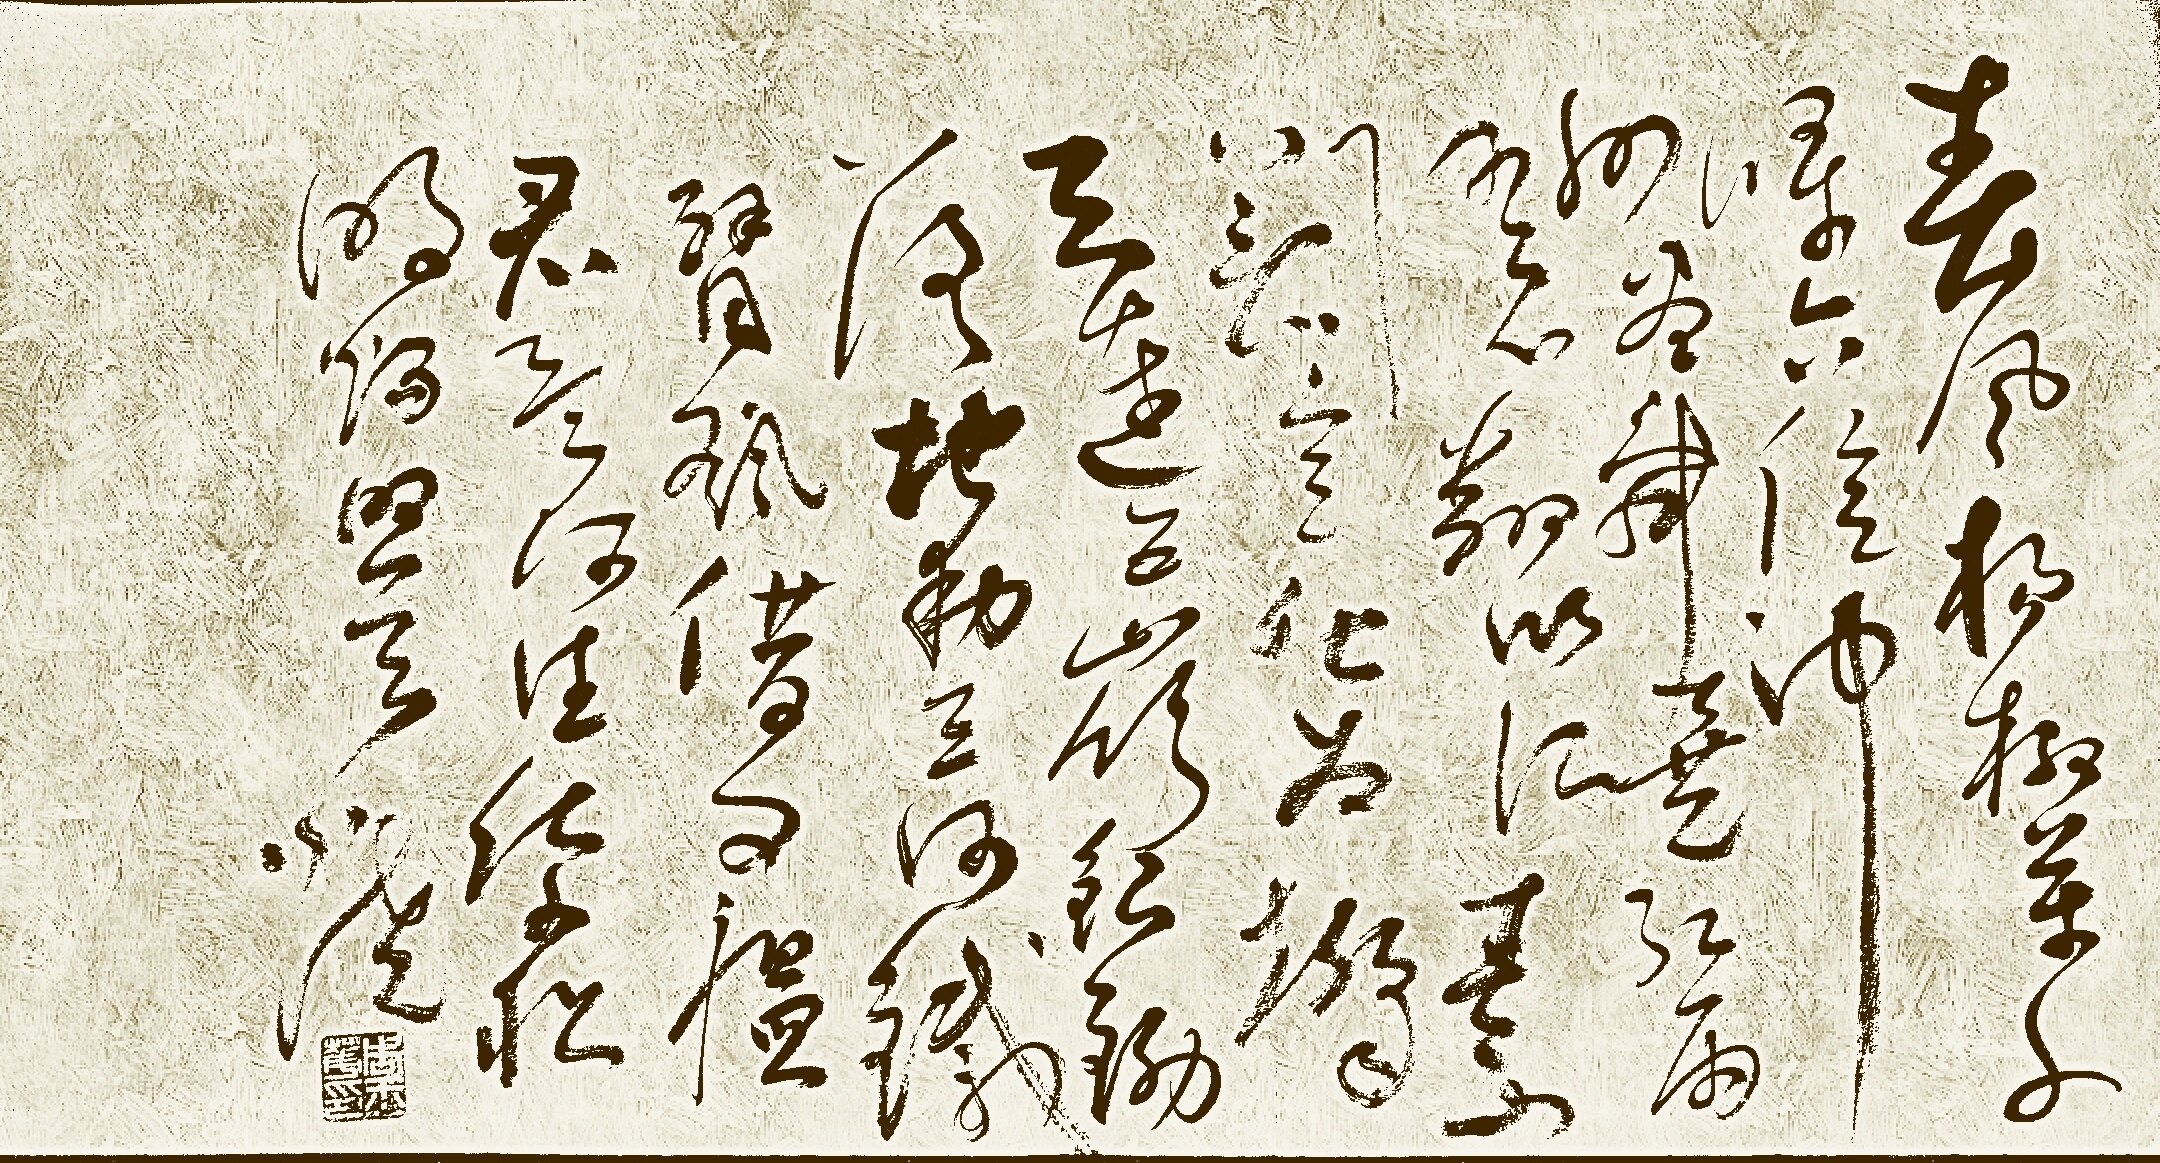 春風楊柳萬千
條六億神
州盡舜堯紅雨
隨心翻作浪青山
着意化為橋
天連五嶺銀鋤
落地動三河鐵
臂搖借问瘟
君欲何往紙船
明燭照天燒